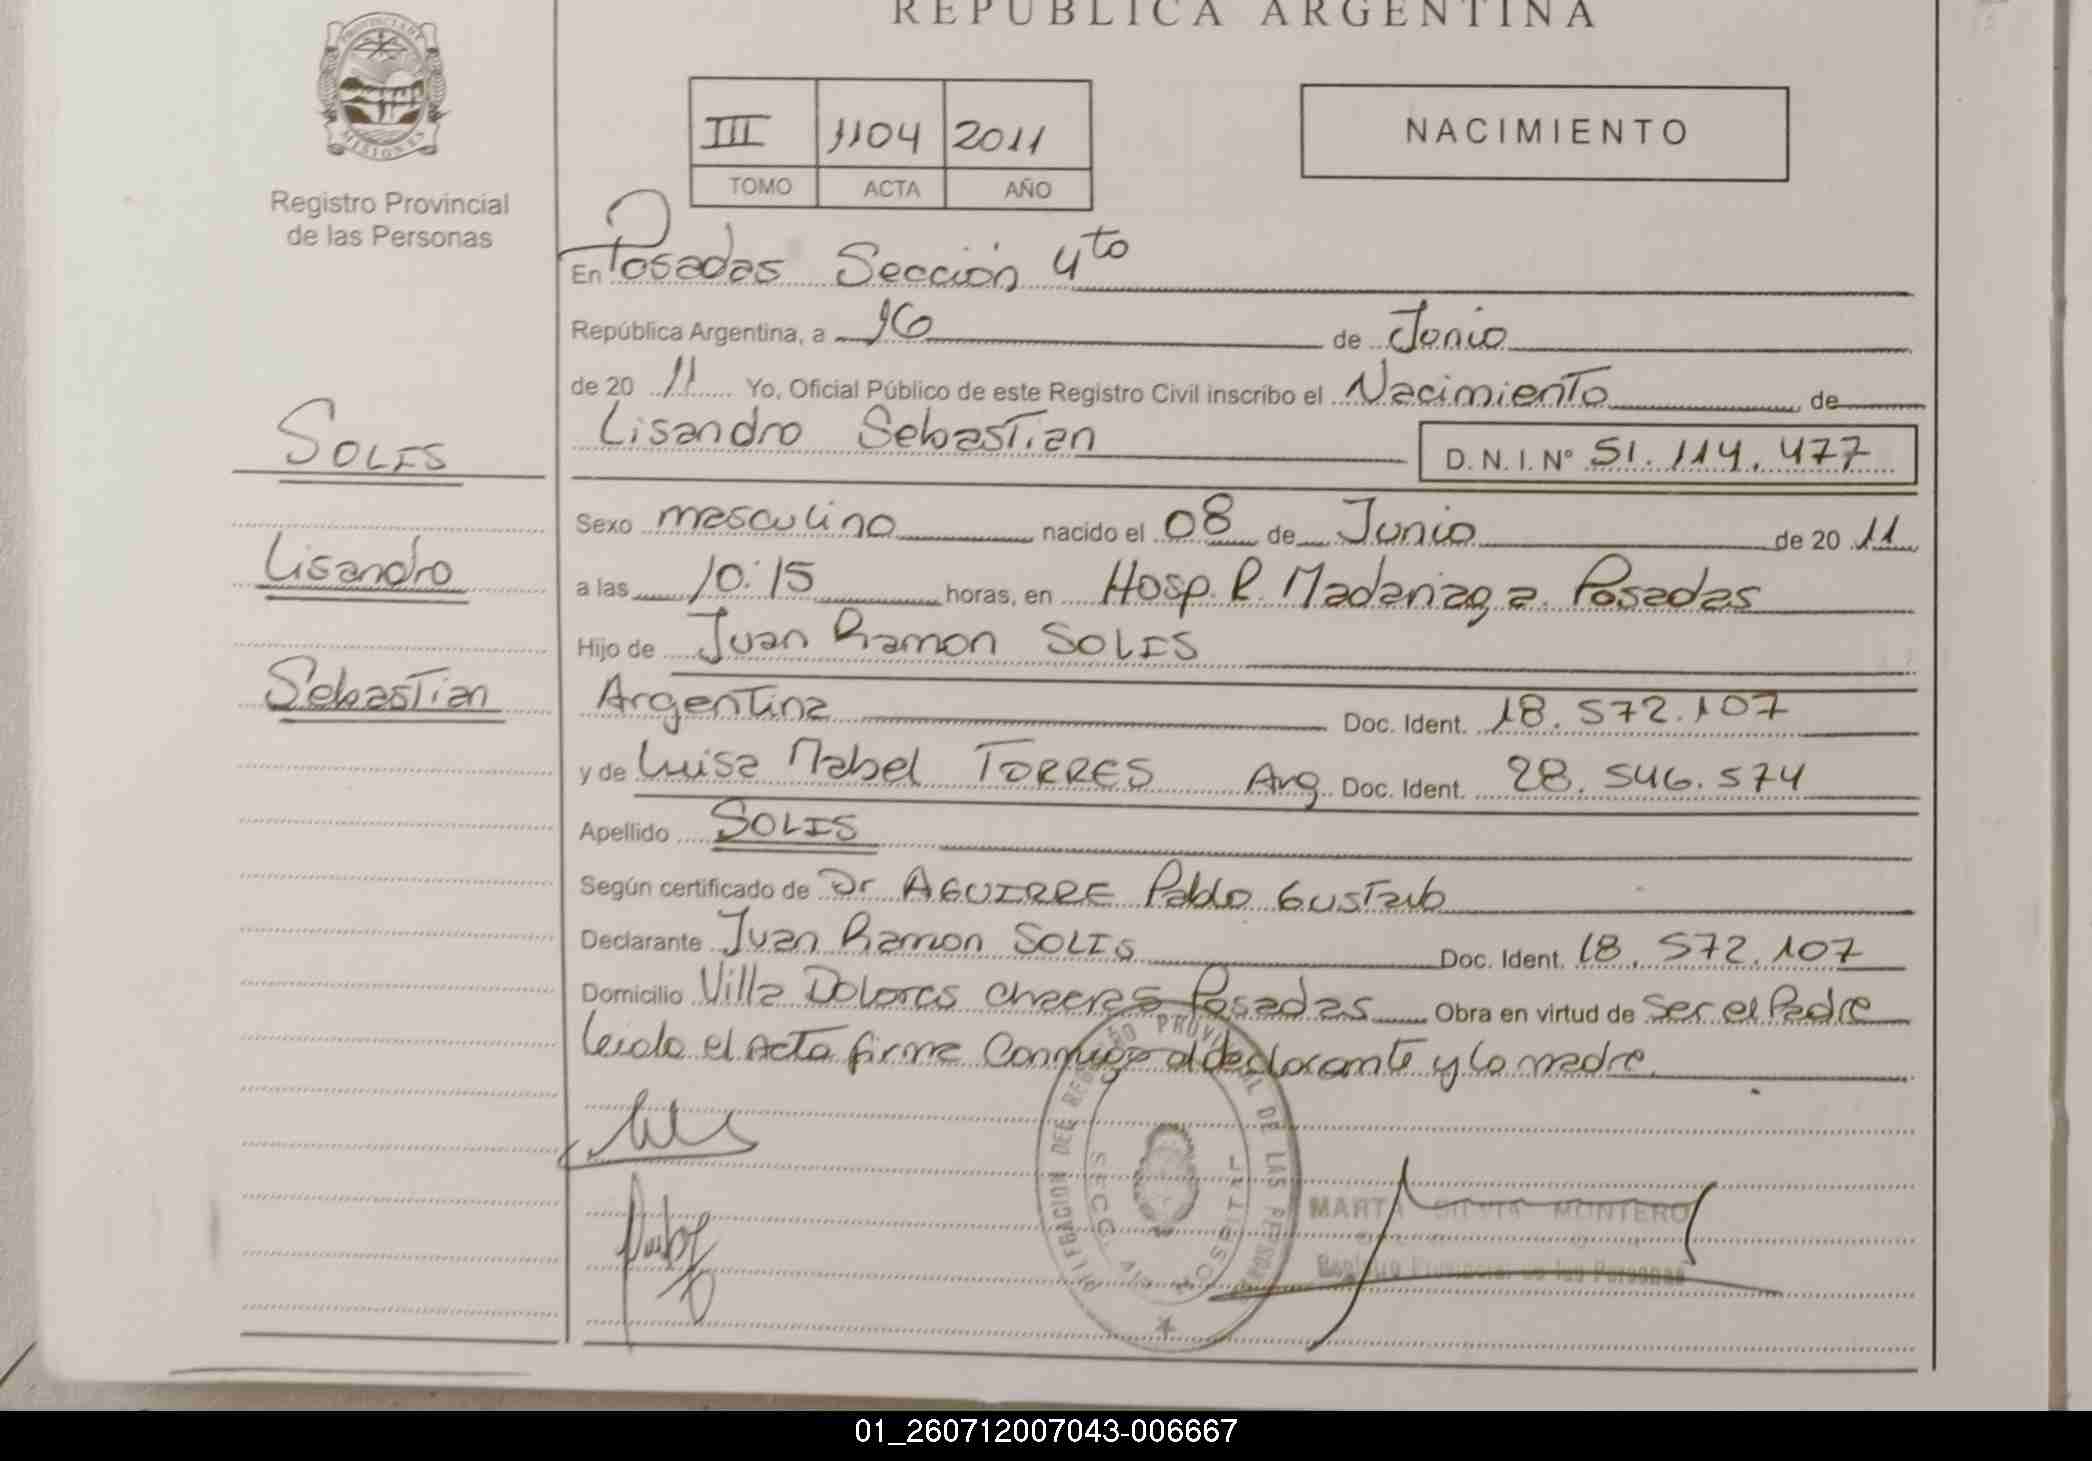 REPÚBLICA ARGENTINA
PROVINCIA DE MISIONES
Registro Provincial
de las Personas
III 1104 2011
TOMO ACTA AÑO
NACIMIENTO
En Posadas Sección 4to
República Argentina, a 16 de Junio
de 20 11 Yo, Oficial Público de este Registro Civil inscribo el Nacimiento de
Lisandro Sebastian
D. N. I. Nº 51.114.477
SOLIS
Lisandro
Sebastian
Sexo masculino nacido el 08 de Junio de 20 11
a las 10:15 horas, en Hosp. R. Madariaga. Posadas
Hijo de Juan Ramon SOLIS
Argentina Doc. Ident. 18.572.107
y de Luisa Mabel TORRES Arg. Doc. Ident. 28.546.574
Apellido SOLIS
Según certificado de Dr AGUIRRE Pablo Gustavo
Declarante Juan Ramon SOLIS Doc. Ident. 18.572.107
Domicilio Villa Dolores chacras Posadas Obra en virtud de ser el Padre
leido el Acta firma Conmigo el declarante y la madre.
DELEGACION DEL REGISTRO PROVINCIAL DE LAS PERSONAS
SECC. HOSPITAL
MARTA SILVIA MONTERO
Registro Provincial de las Personas
01_260712007043-006667